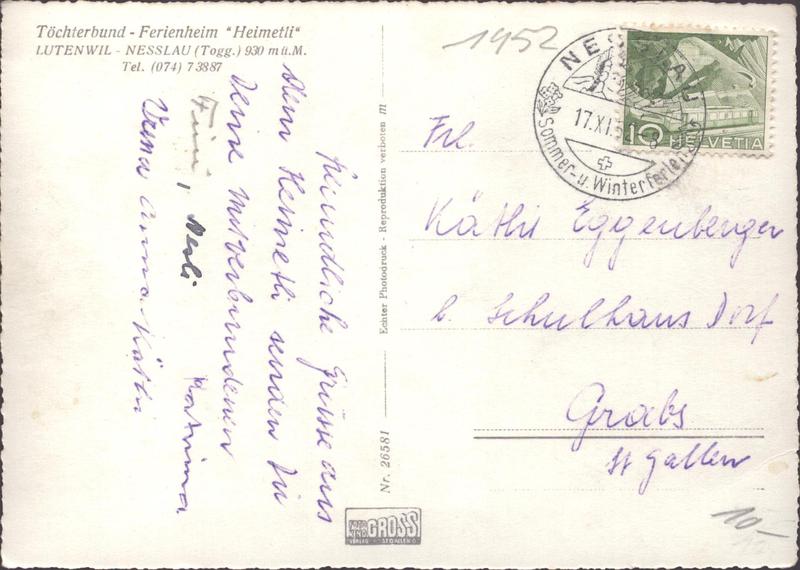 Töchterbund - Ferienheim "Heimetli"
LUTENWIL - NESSLAU (Togg.) 930 m ü. M.
Tel. (074) 7 38 87
1952
NESSLAU
17.XI.52
Sommer- u. Winterferien
10
HELVETIA
Frl.
Käthi Eggenberger
b. Schulhaus Dorf
Grabs
St Gallen
10.-
Freundliche Grüsse aus
dem Heimetli senden Dir
Deine Mitverbundenen
Fini, Nesli
Verena Anna-Käthi
Echter Photodruck - Reproduktion verboten
Nr. 26581
GROSS
VERLAG ST. GALLEN